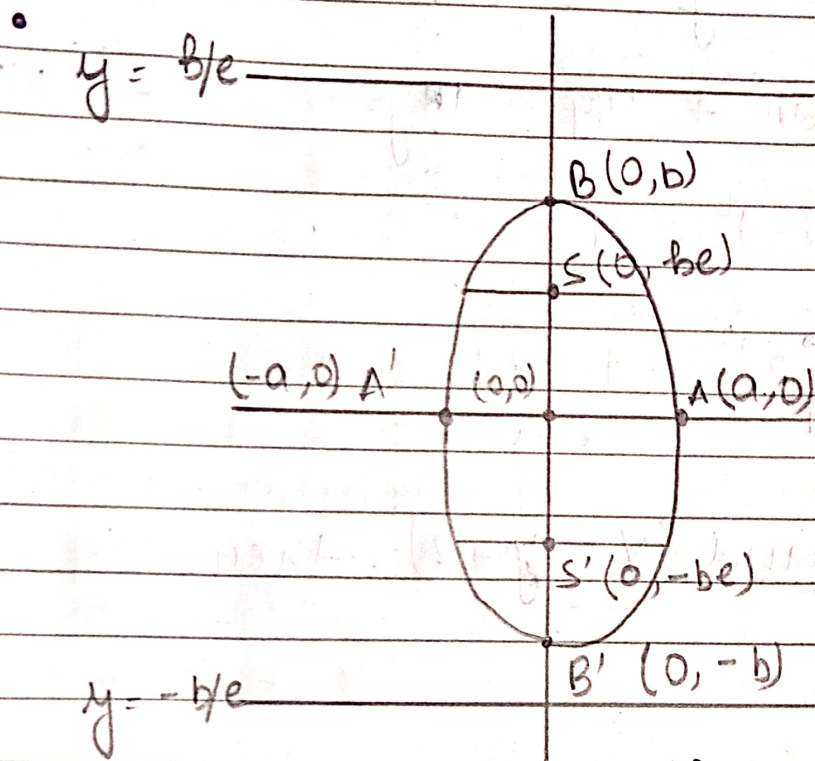 y = b/e
B(0,b)
S(0, be)
(-a,0) A' (0,0) A(a,0)
S'(0,-be)
B' (0, -b)
y = -b/e